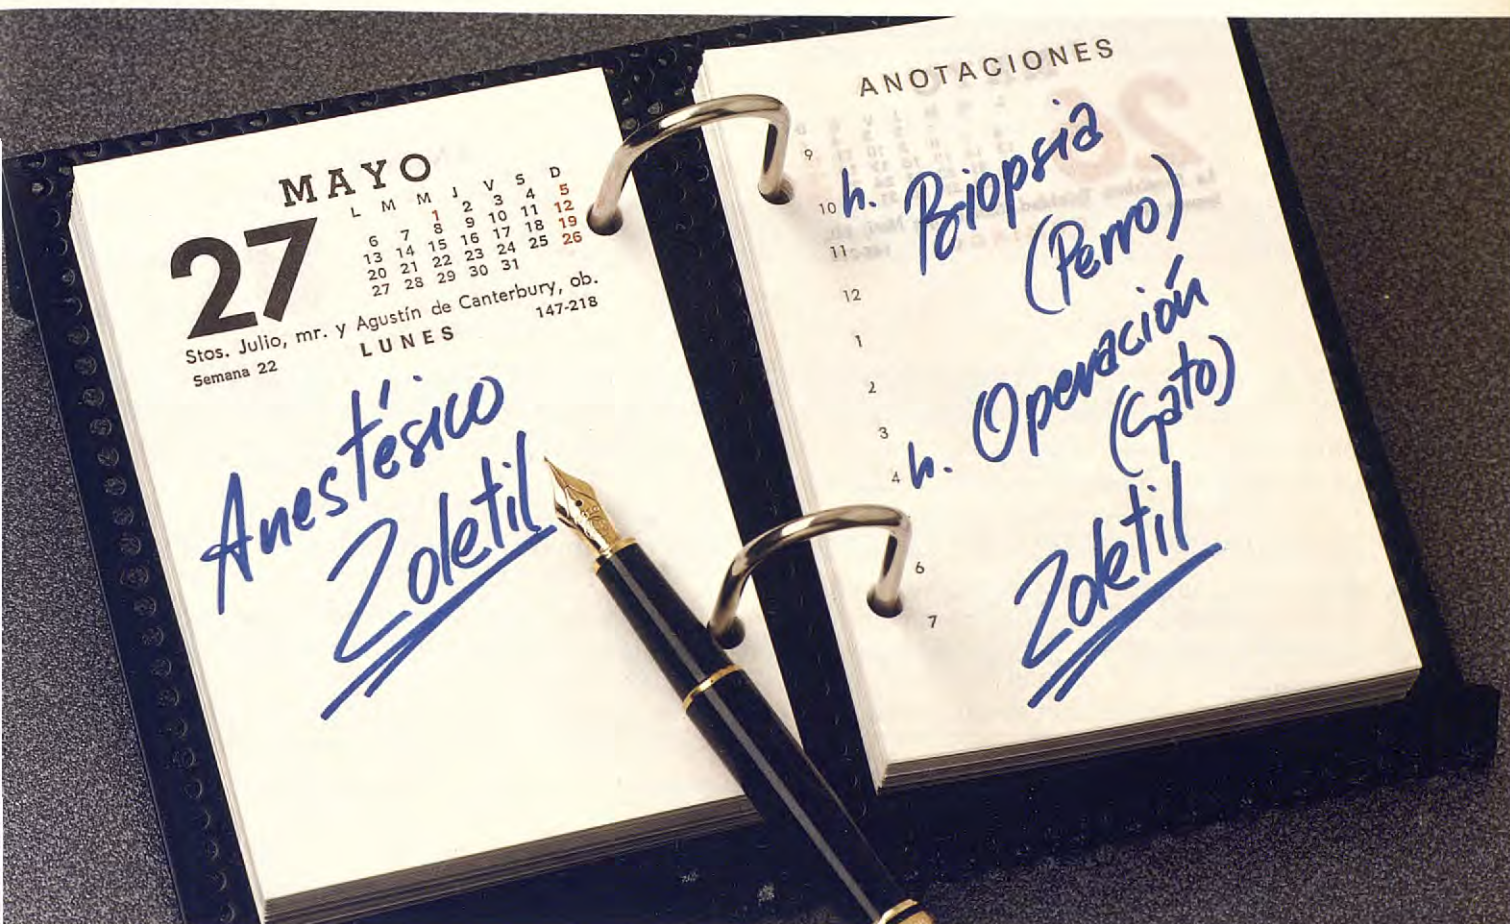 MAYO
27
L M M J V S D
1 2 3 4 5
6 7 8 9 10 11 12
13 14 15 16 17 18 19
20 21 22 23 24 25 26
27 28 29 30 31
Stos. Julio, mr. y Agustín de Canterbury, ob.
Semana 22 LUNES 147-218
Anestésico
Zoletil
ANOTACIONES
9
10 h. Biopsia
11 (Perro)
12
1
2
3
4 h. Operación
(Gato)
6
7
Zoletil